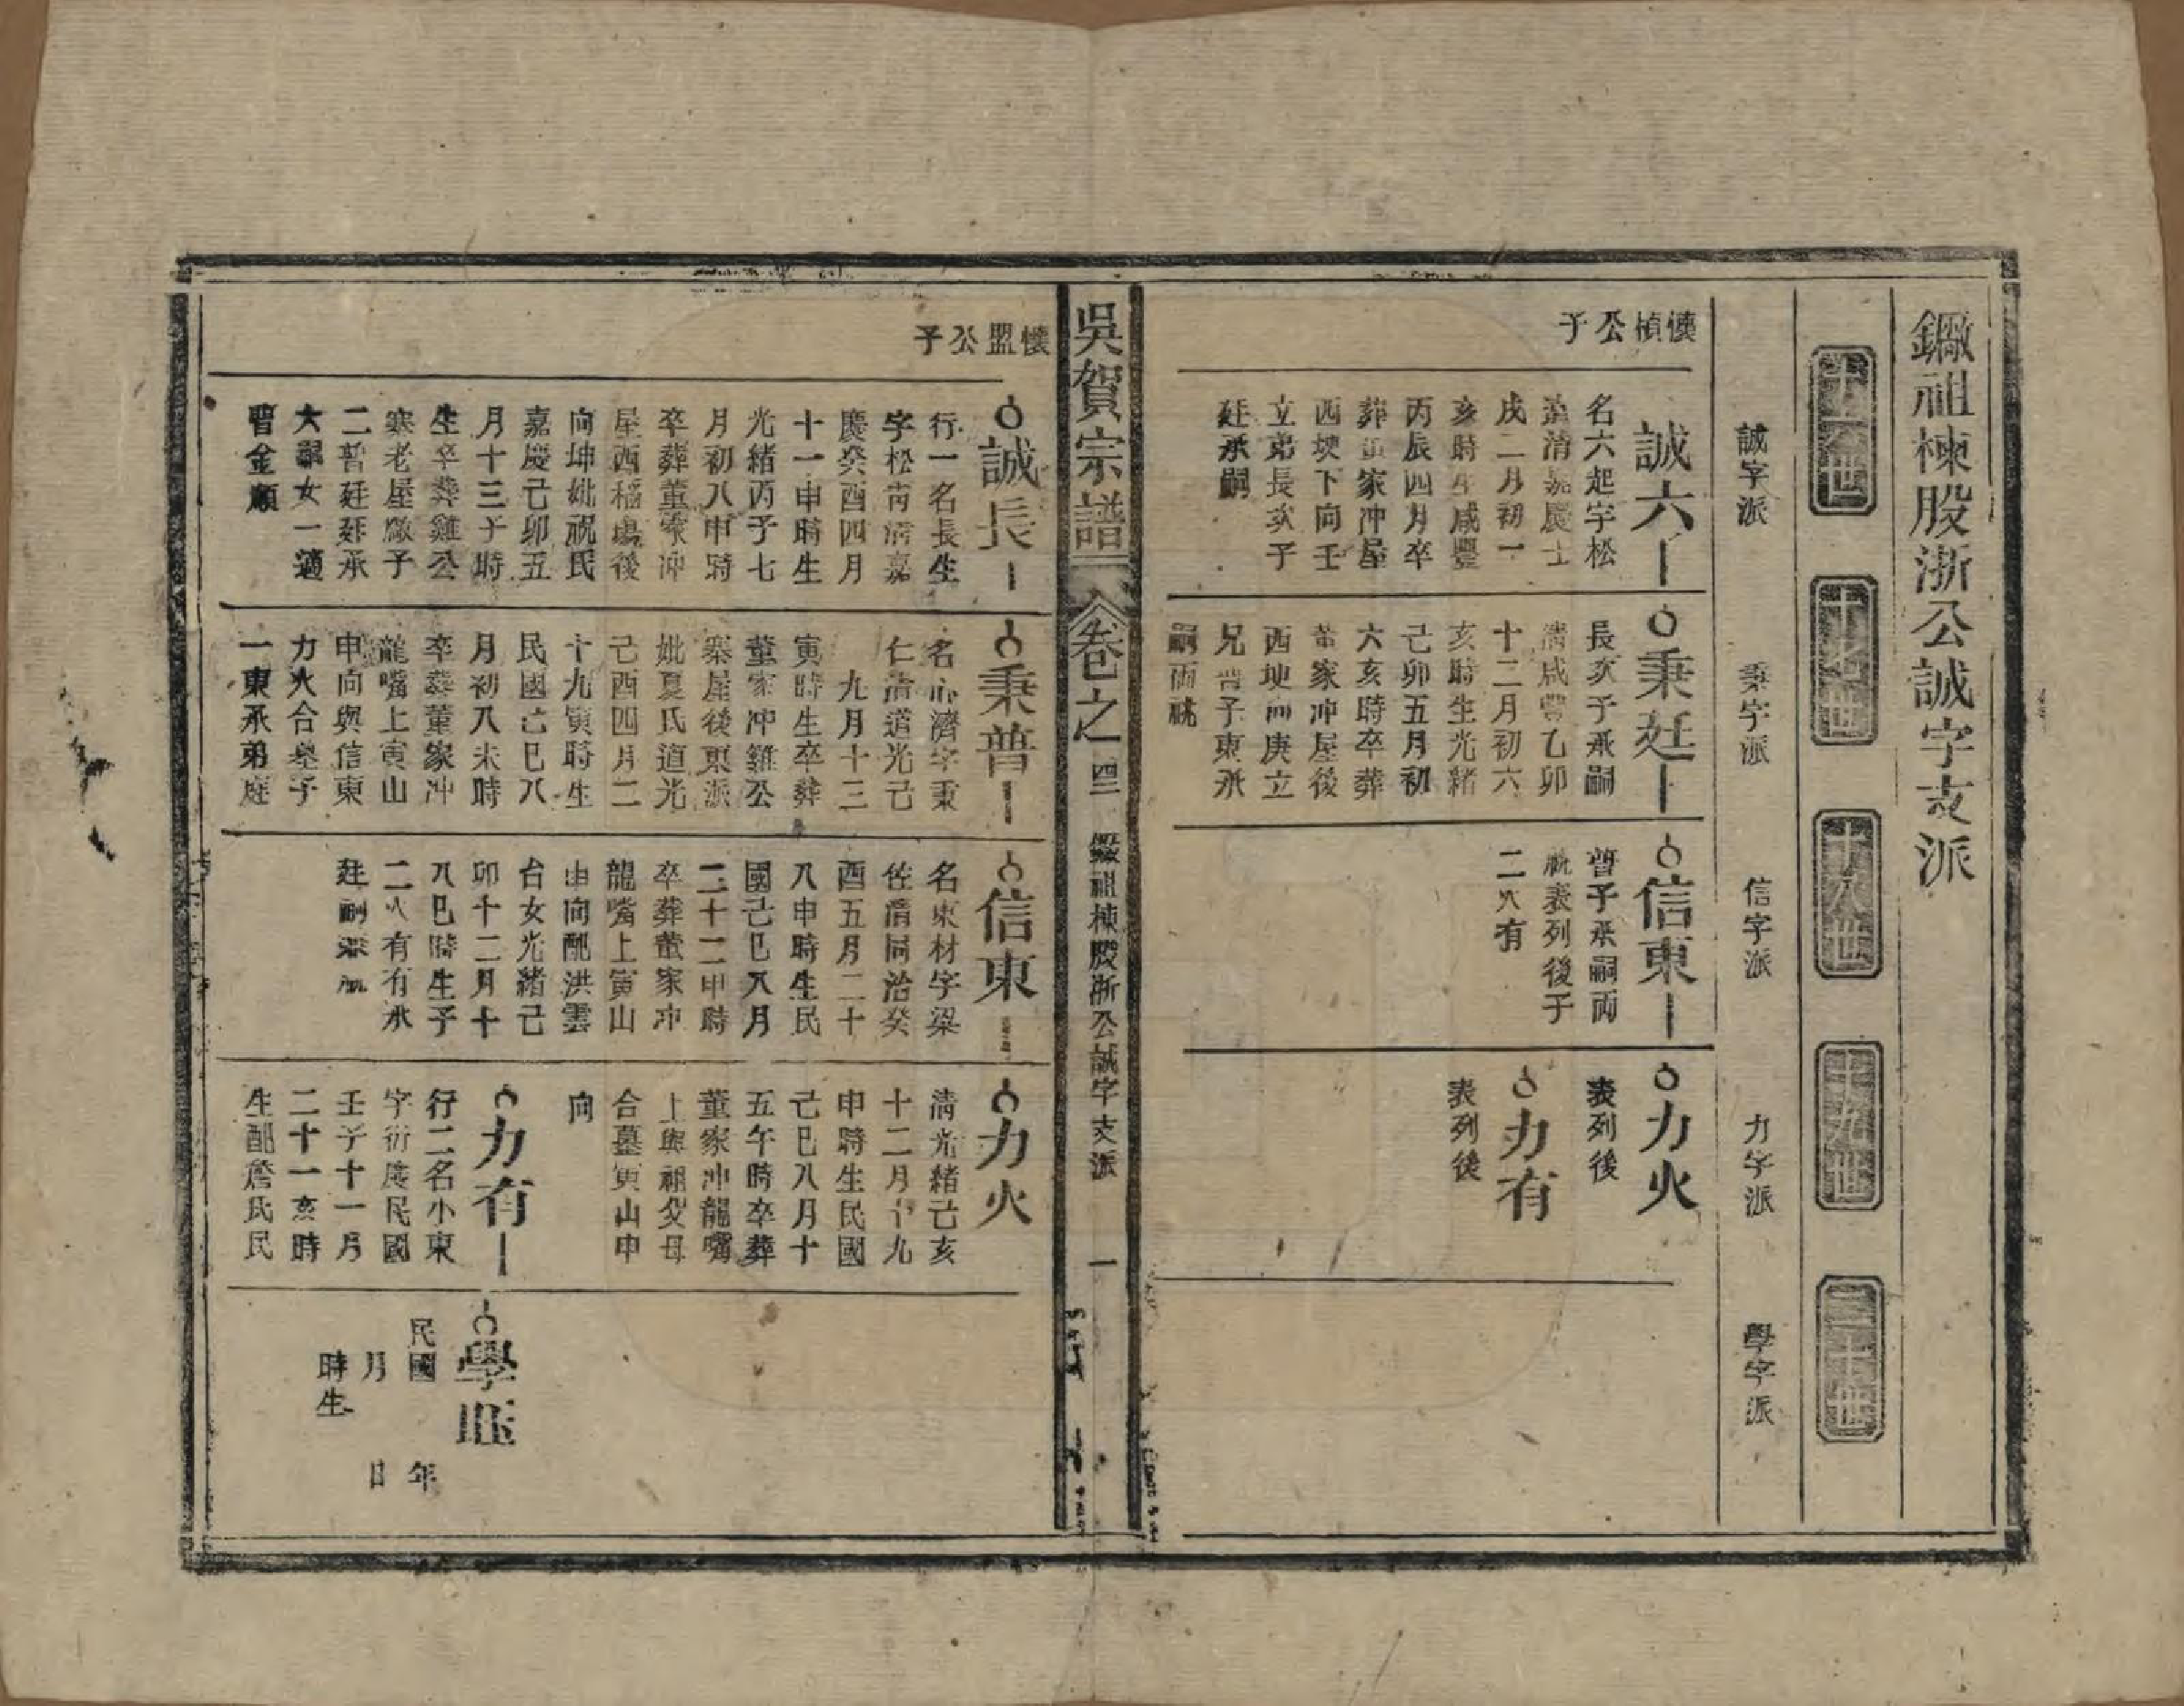 鐝祖棟股浙公誠字支派
十六世
十七世
十八世
十九世
二十世
誠字派
秉字派
信字派
力字派
學字派
懷楨公子
誠六
名六起字松
清嘉慶士
戌二月初一
亥時生咸豐
丙辰四月卒
葬董家冲屋
西塝下向壬
立弟長次子
廷承嗣
秉廷
長次子承嗣
清咸豐乙卯
十二月初六
亥時生光緒
己卯五月初
六亥時卒葬
董家冲屋後
西塝向庚立
兄普子東承
嗣兩祧
信東
普子承嗣兩
祧表列後子
二火有
力火
表列後
力有
表列後
吳賀宗譜
卷之四
鐝祖棟股浙公誠字支派
一
懷盟公子
誠長
行一名長生
字松茼清嘉
慶癸酉四月
十一申時生
光緒丙子七
月初八申時
卒葬董家冲
屋西稲塲後
向坤妣祝氏
嘉慶己卯五
月十三子時
生卒葬雞公
寨老屋廠子
二普廷廷承
大嗣女一適
曹金順
秉普
名心濟字秉
仁清道光己
九月十三
寅時生卒葬
董家冲雞公
寨屋後東派
妣夏氏道光
己酉四月二
十九寅時生
民國己巳八
月初八未時
卒葬董家冲
龍嘴上寅山
申向與信東
力火合墓子
一東承弟庭
信東
名東材字梁
佐清同治癸
酉五月二十
八申時生民
國己巳八月
二十二申時
卒葬董家冲
龍嘴上寅山
申向配洪雲
台女光緒己
卯十二月十
八巳時生子
二火有有承
廷嗣兼祧
力火
清光緒己亥
十二月十九
申時生民國
己巳八月十
五午時卒葬
董家冲龍嘴
上與祖父母
合墓寅山申
向
力有
行二名小東
字衍慶民國
壬子十一月
二十一亥時
生配詹氏民
學
民國　年
月　日
時生